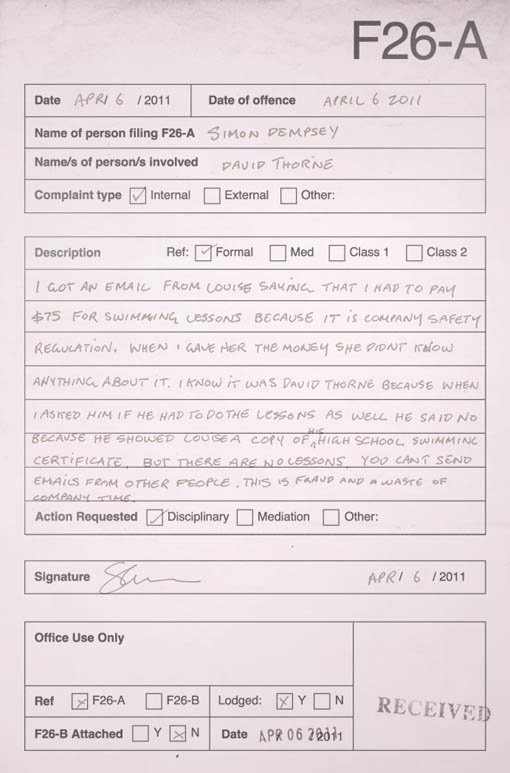 F26-A
Date APRI 6 / 2011 Date of offence APRIL 6 2011
Name of person filing F26-A SIMON DEMPSEY
Name/s of person/s involved DAVID THORNE
Complaint type Internal External Other:
Description Ref: Formal Med Class 1 Class 2
I GOT AN EMAIL FROM LOUISE SAYING THAT I HAD TO PAY
$75 FOR SWIMMING LESSONS BECAUSE IT IS COMPANY SAFETY
REGULATION. WHEN I GAVE HER THE MONEY SHE DIDNT KNOW
ANYTHING ABOUT IT. I KNOW IT WAS DAVID THORNE BECAUSE WHEN
I ASKED HIM IF HE HAD TO DO THE LESSONS AS WELL HE SAID NO
BECAUSE HE SHOWED LOUISE A COPY OF HIS HIGH SCHOOL SWIMMING
CERTIFICATE. BUT THERE ARE NO LESSONS. YOU CANT SEND
EMAILS FROM OTHER PEOPLE. THIS IS FRAUD AND A WASTE OF
COMPANY TIME.
Action Requested Disciplinary Mediation Other:
Signature APRI 6 / 2011
Office Use Only
Ref F26-A F26-B Lodged: Y N
RECEIVED
F26-B Attached Y N Date APR 06 2011 / 2011